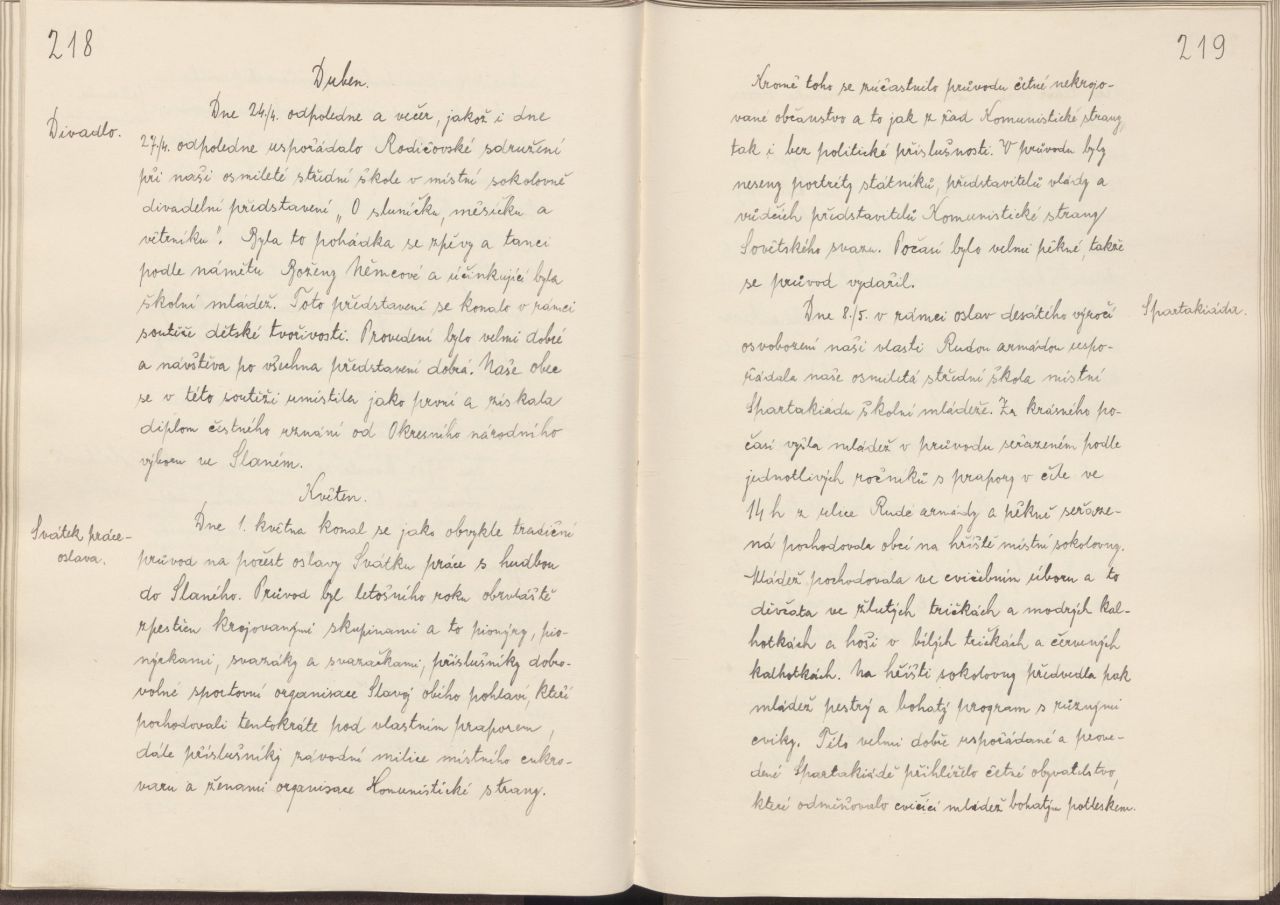 218
Duben.
Divadlo.
Dne 24./4. odpoledne a večer, jakož i dne
27./4. odpoledne uspořádalo Rodičovské sdružení
při naši osmileté střední škole v místní sokolovně
divadelní představení „O sluníčku, měsíčku a
větrníku“. Byla to pohádka se zpěvy a tanci
podle námětu Boženy Němcové a účinkující byla
školní mládež. Toto představení se konalo v rámci
soutěže dětské tvořivosti. Provedení bylo velmi dobré
a návštěva po všechna představení dobrá. Naše obec
se v této soutěži umístila jako první a získala
diplom čestného uznání od Okresního národního
výboru ve Slaném.
Květen.
Svátek práce-
oslava.
Dne 1. května konal se jako obvykle tradiční
průvod na počest oslavy Svátku práce s hudbou
do Slaného. Průvod byl letošního roku obzvláště
zpestřen krojovanými skupinami a to pionýry, pio-
nýrkami, svazáky a svazačkami, příslušníky dobro-
volné sportovní organisace Slavoj obého pohlaví, kteří
pochodovali tentokráte pod vlastním praporem,
dále příslušníky závodní milice místního cukro-
varu a ženami organisace Komunistické strany.
219
Kromě toho se zúčastnilo průvodu četné nekrojo-
vané občanstvo a to jak z řad Komunistické strany,
tak i bez politické příslušnosti. V průvodu byly
neseny portréty státníků, představitelů vlády a
vůdčích představitelů Komunistické strany
Sovětského svazu. Počasí bylo velmi pěkné, takže
se průvod vydařil.
Spartakiáda.
Dne 8./5. v rámci oslav desátého výročí
osvobození naši vlasti Rudou armádou uspo-
řádala naše osmiletá střední škola místní
Spartakiádu školní mládeže. Za krásného po-
časí vyšla mládež v průvodu seřazeném podle
jednotlivých ročníků s prapory v čele ve
14 h z ulice Rudé armády a pěkně seřaze-
ná pochodovala obcí na hřiště místní sokolovny.
Mládež pochodovala ve cvičebním úboru a to
děvčata ve žlutých tričkách a modrých kal-
hotkách a hoši v bílých tričkách a červených
kalhotkách. Na hřišti sokolovny předvedla pak
mládež pestrý a bohatý program s různými
cviky. Této velmi dobře uspořádané a prove-
dené Spartakiádě přihlíželo četné obyvatelstvo,
které odměňovalo cvičící mládež bohatým potleskem.